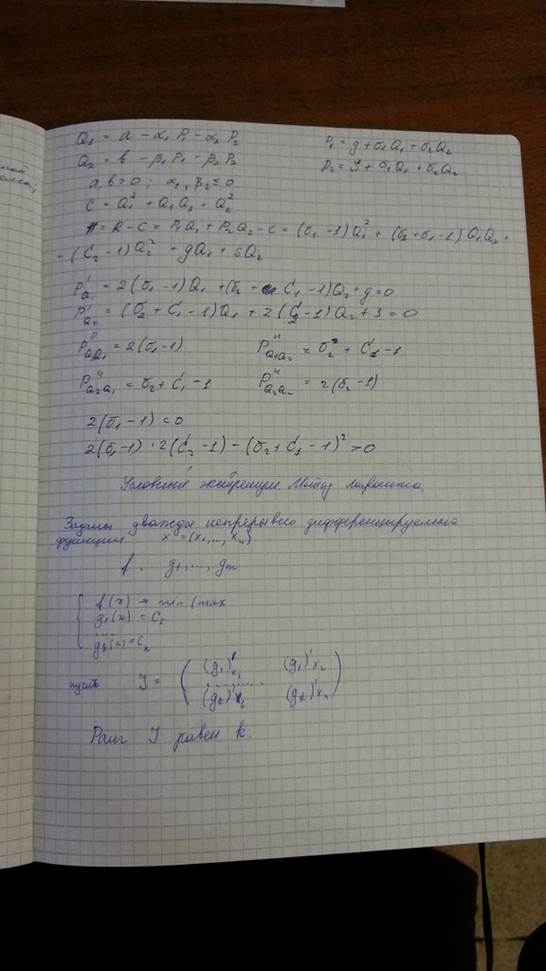 Q₁ = a − α₁ P₁ − α₂ P₂
P₁ = g + σ₁Q₁ + σ₂Q₂
Q₂ = b − β₁ P₁ − β₂ P₂
P₂ = J + σ₁Q₁ + σ₂Q₂
a, b > 0 ; α₁, β₂ ≤ 0
C = Q₁² + Q₁Q₂ + Q₂²
π = R − C = P₁Q₁ + P₂Q₂ − C = (σ₁ − 1)Q₁² + (σ₂ + σ₁ − 1)Q₁Q₂ +
+ (C₂ − 1)Q₂² + gQ₁ + SQ₂
P'Q₁ = 2(σ₁ − 1)Q₁ + (σ₂ + C₁' − 1)Q₂ + g = 0
P'Q₂ = (σ₂ + C₁ − 1)Q₁ + 2(C₂' − 1)Q₂ + J = 0
P''Q₁Q₁ = 2(σ₁ − 1)
P''Q₁Q₂ = σ₂ + C₁' − 1
P''Q₂Q₁ = σ₂ + C₁' − 1
P''Q₂Q₂ = 2(σ₂ − 1)
2(σ₁ − 1) < 0
2(σ₁ − 1) · 2(C₂' − 1) − (σ₂ + C₁' − 1)² > 0
Условный экстремум. Метод Лагранжа.
Заданы дважды непрерывно дифференцируемого
функции x = (x₁, ..., xₙ)
f, g₁, ..., gₘ
f(x) → min (max
g₁(x) = C₁
....
gₖ(x) = Cₖ
пусть J = ( (g₁)'x₁ (g₁)'xₙ
............
(gₖ)'x₁ (gₖ)'xₙ )
Ранг J равен k.